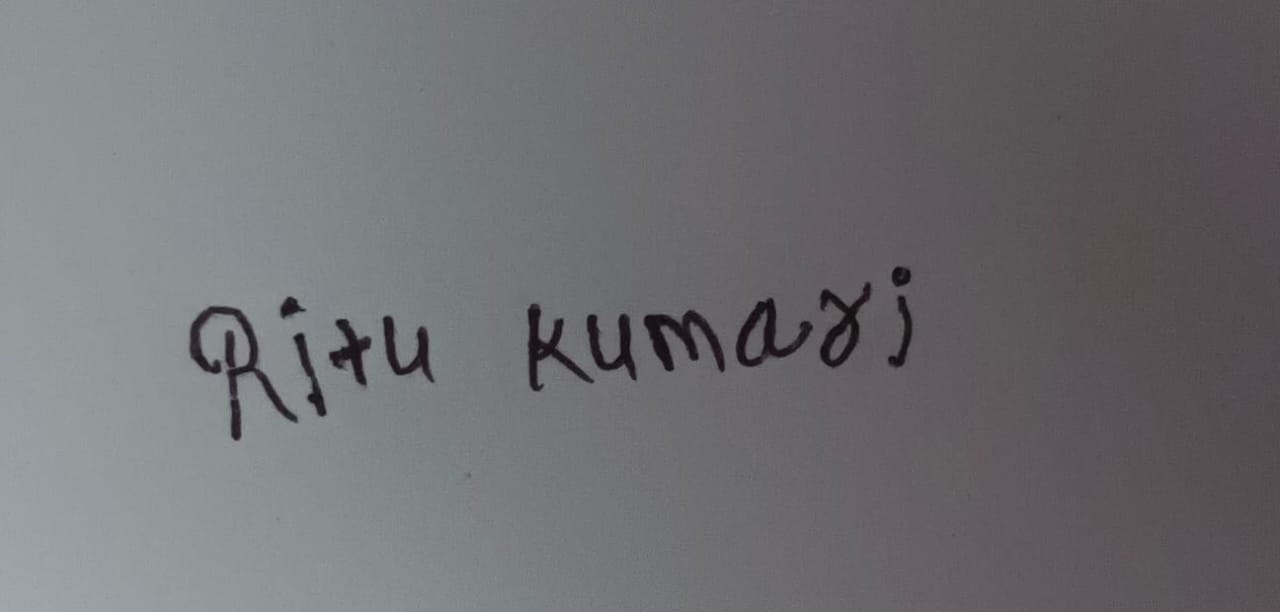 Ritu kumari